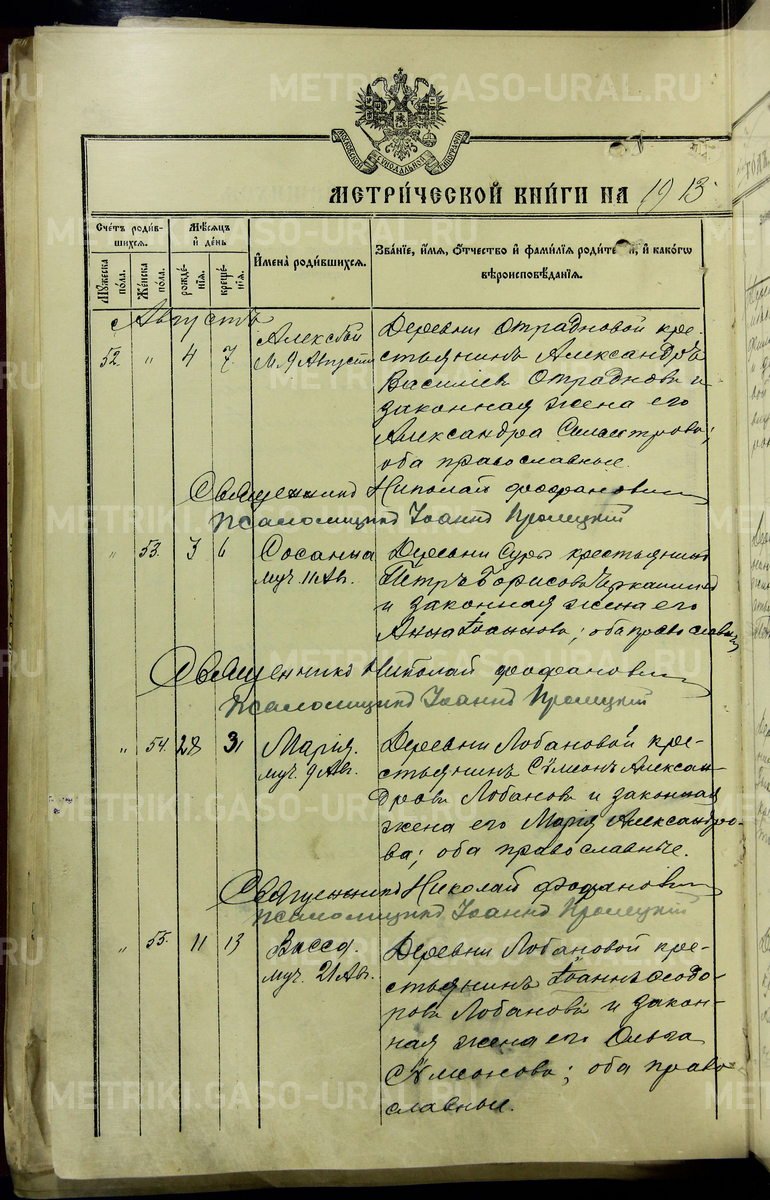 METRIKI.GASO-URAL.RU
МОСКОВСКОЙ СѴНОДАЛЬНОЙ ТИПОГРАФІИ
МЕТРИЧЕСКОЙ КНИГИ НА 1913
Счетъ родив-
шихся.
Мѣсяцъ
и день
Мужеска пола.
Женска пола.
рожде-
нія.
креще-
нія.
Имена родившихся.
Званіе, имя, отчество и фамилія родителей, и какого
вѣроисповѣданія.
Августъ
52 " 4 7 Алексѣй
9 Августа
Деревни Отрадновой кре-
стьянинъ Александръ
Василіевъ Отрадновъ и
законная жена его
Александра
оба православные.
Священникъ Николай
Псаломщикъ Іоаннъ
" 53. 3 6 Сосанна
муч. 11 Ав.
Деревни Суры крестьянинъ
Петръ Борисовъ
и законная жена его
Анна Іоаннова; оба православные
Священникъ Николай
Псаломщикъ Іоаннъ
" 54. 28 31 Марія.
муч. 9 Ав.
Деревни Лобановой кре-
стьянинъ Сѵмеонъ Алексан-
дровъ Лобановъ и законная
жена его Марія Александро-
ва; оба православные.
Священникъ Николай
Псаломщикъ Іоаннъ
" 55. 11 13 Васса.
муч. 21 Ав.
Деревни Лобановой кре-
стьянинъ Іоаннъ Ѳеодо-
ровъ Лобановъ и закон-
ная жена его Ольга
Сѵмеонова; оба право-
славные.